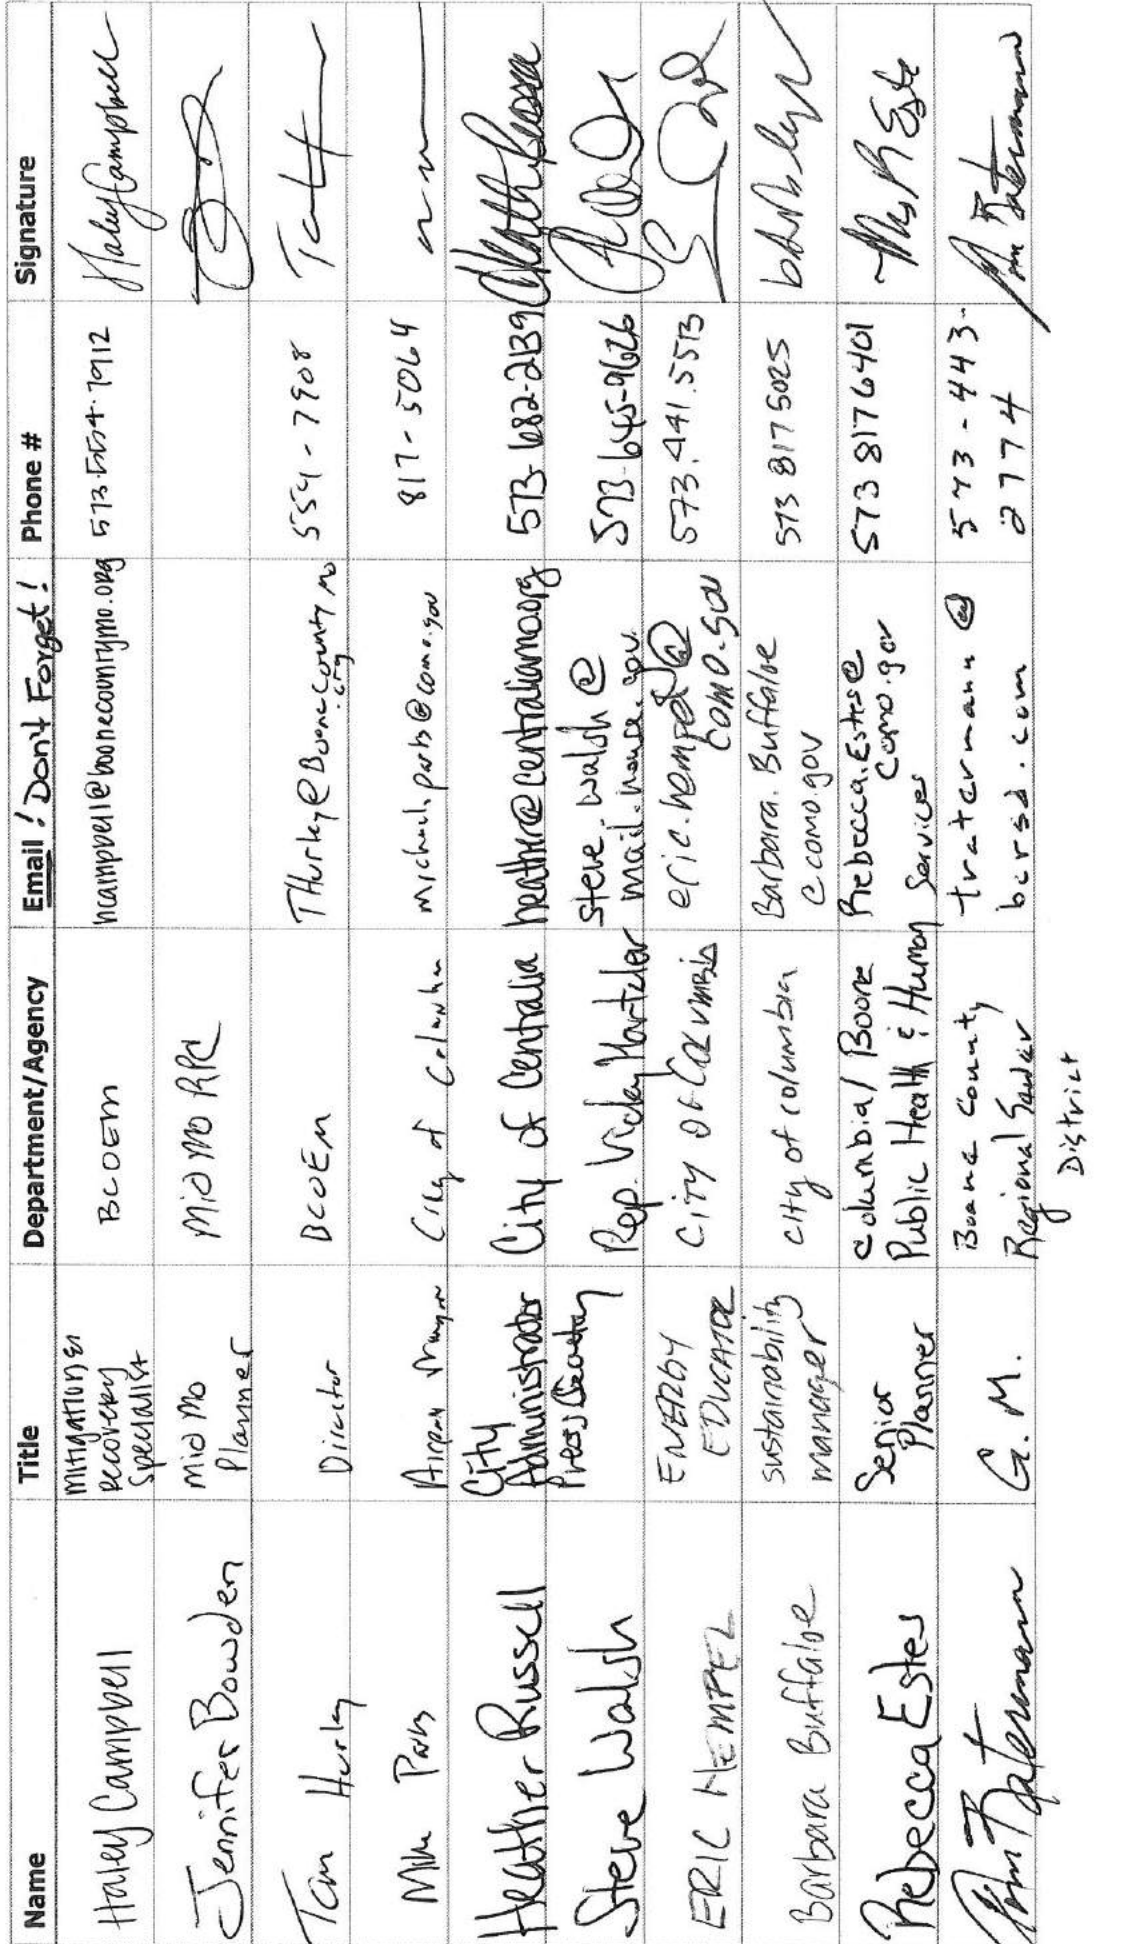 Name Title Department/Agency Email ! Don't Forget! Phone # Signature
Haley Campbell
Mitigation &
recovery
specialist
BCOEM
hcampbell@boonecountymo.org
573.554.7912
Haley Campbell
Jennifer Bowden
Mid Mo
Planner
Mid MO RPC
Tom Hurley
Director
BCOEM
THurley@BooneCountyMo
.org
554-7908
Mike Parks
Airport Manager
City of Columbia
michael.parks@como.gov
817-5064
Heather Russell
City
Administrator
City of Centralia
heather@centraliamo.org
573-682-2139
Heather Russell
Steve Walsh
Press Secretary
Rep. Vicky Hartzler
steve.walsh@
mail.house.gov
573-645-9626
ERIC HEMPEL
ENERGY
EDUCATOR
CITY OF COLUMBIA
eric.hempel@
como.gov
573.441.5513
Barbara Buffaloe
sustainability
manager
city of columbia
Barbara.Buffaloe
@como.gov
573 817 5025
Rebecca Estes
Senior
Planner
Columbia/Boone
Public Health & Human Services
Rebecca.Estes@
como.gov
573 817 6401
Ratermann
G. M.
Boone County
Regional Sewer
District
tratermann@
bcrsd.com
573-443-
2774
Tom Ratermann